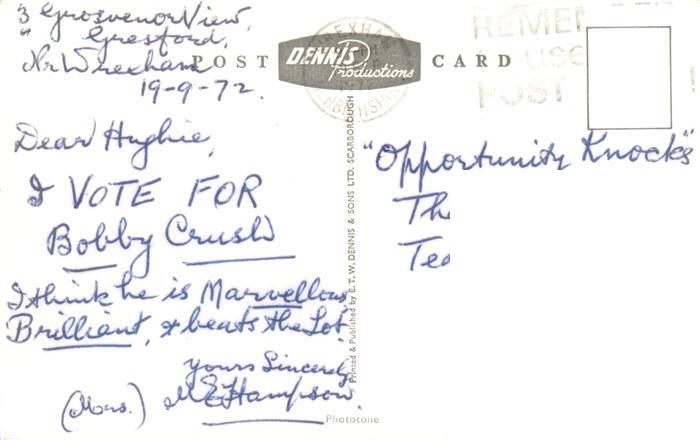 3 Grosvenor View,
" Gresford,
Nr Wrexham
19-9-72.
POST CARD
DENNIS
Productions
WREXHAM
DENBIGHSHIRE
REMEMBER
to use
POST
Dear Hughie,
I VOTE FOR
Bobby Crush
I think he is Marvellous,
Brilliant, & beats the Lot.
Yours Sincerely,
(Mrs.) M E Hampson.
Printed & Published by E. T. W. DENNIS & SONS LTD. SCARBOROUGH
Phototone
"Opportunity Knocks"
Th
Tea